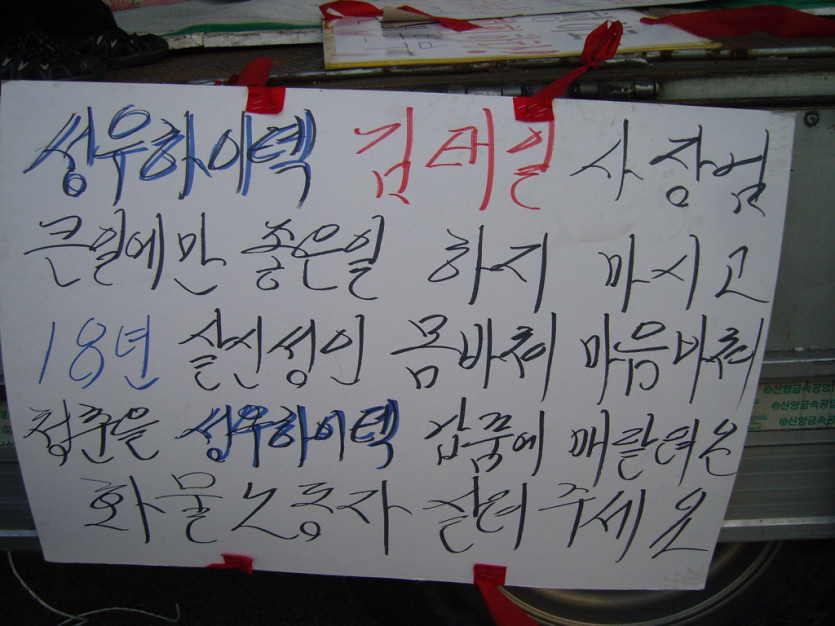 성우하이텍 김태일 사장님
큰일에만 좋은일 하지 마시고
18년 실신성인 몸바쳐 마음바쳐
청춘을 성우하이텍 납품에 매달려온
화물노동자 살려주세요
@신양금속공업
@신양금속공